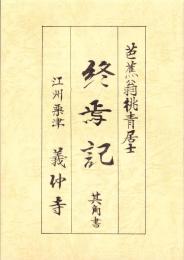 芭蕉翁桃青居士
終焉記
其角書
江州粟津
義仲寺